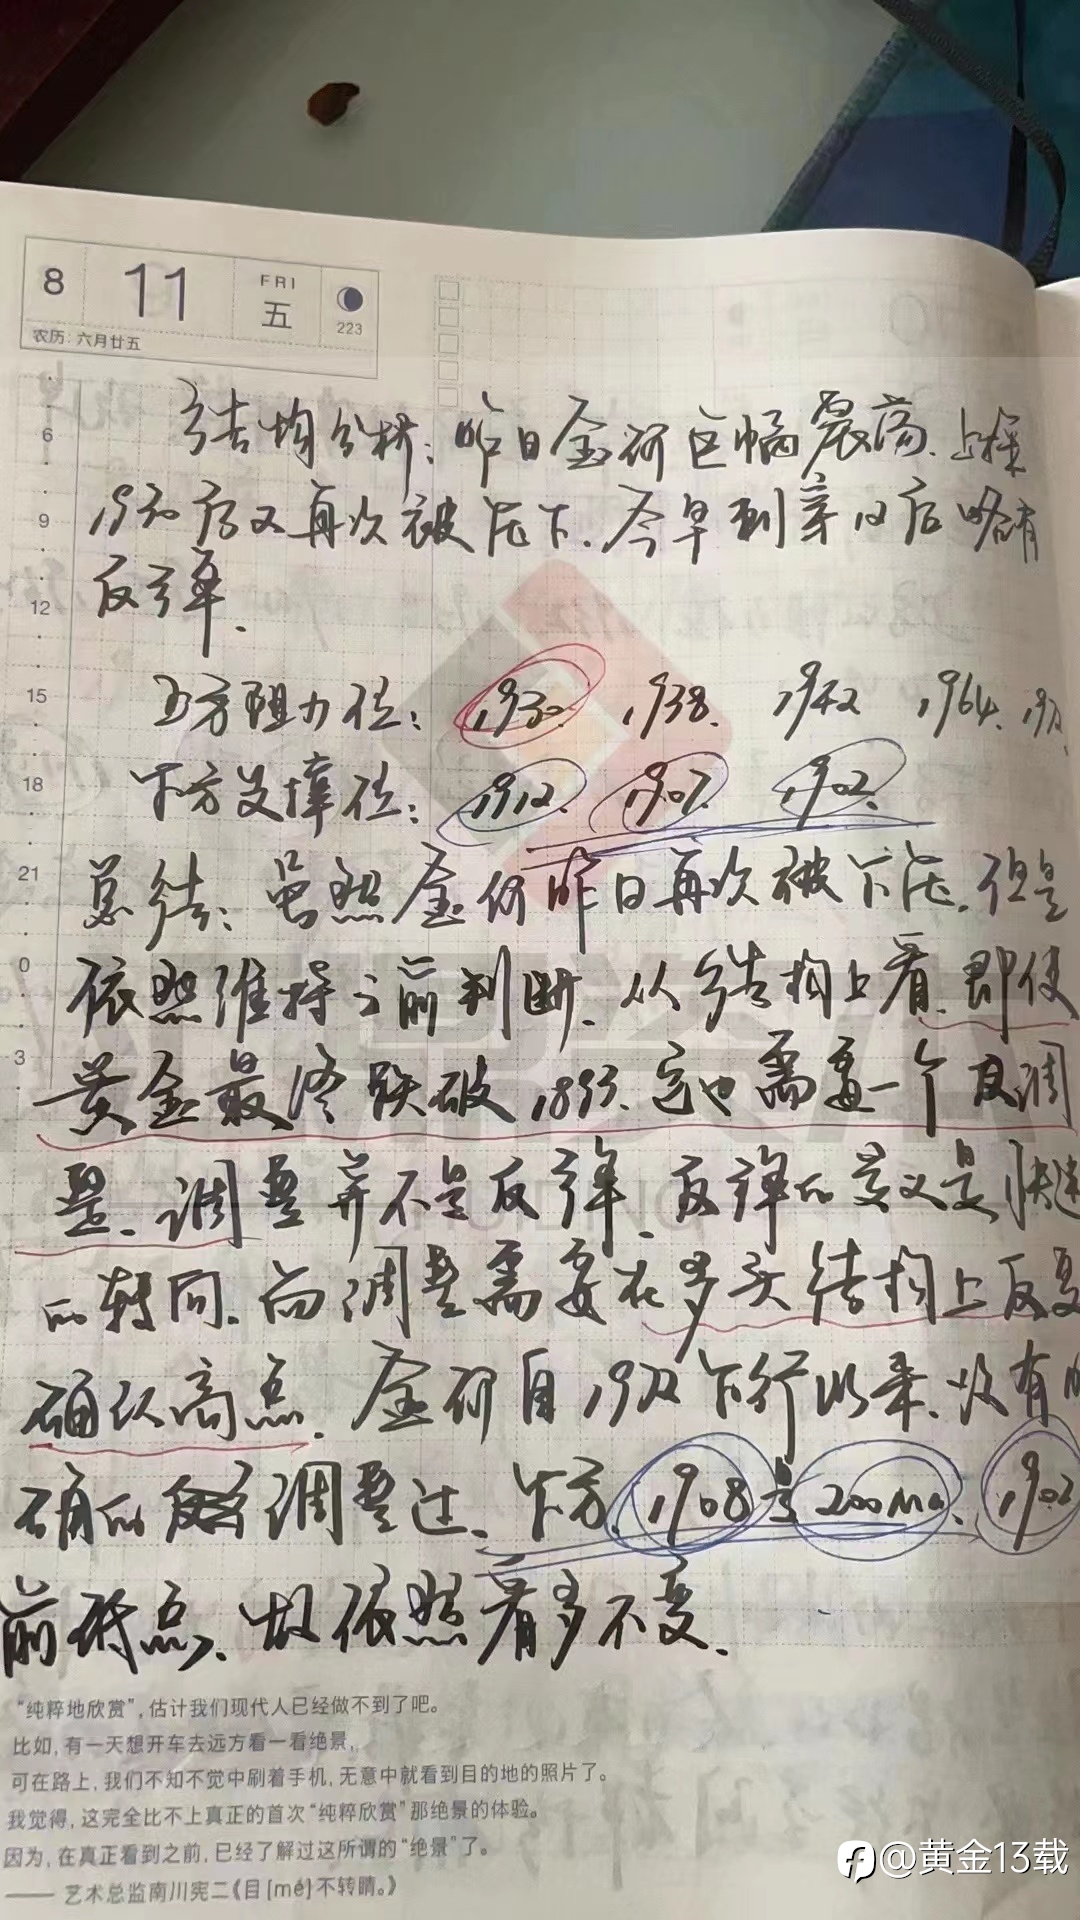 8 11 FRI 五 223
农历：六月廿五
结构分析：昨日金价巨幅震荡.上探
6
1930后又再次被压下.今早到亲口后略有
9
反弹.
12
上方阻力位：1930. 1938. 1942 1964.
15
下方支撑位：1912. 1907. 1902.
18
总结：虽然金价昨日再次被下压.但是
21
依照维持之前判断.从结构上看.即使
0
黄金最终跌破1893.它也需要一个反调
3
整.调整并不是反弹.反弹的意义是快速
的转向.而调整需要在多头结构上反复
确认高点.金价自下行以来.没有明
确的调整过.下方.1908与200ma.1902
前转点.故依照看多不变.
“纯粹地欣赏”，估计我们现代人已经做不到了吧。
比如，有一天想开车去远方看一看绝景，
可在路上，我们不知不觉中刷着手机，无意中就看到目的地的照片了。
我觉得，这完全比不上真正的首次“纯粹欣赏”那绝景的体验。
因为，在真正看到之前，已经了解过这所谓的“绝景”了。
—— 艺术总监南川宪二《目[mé]不转睛。》
@黄金13载